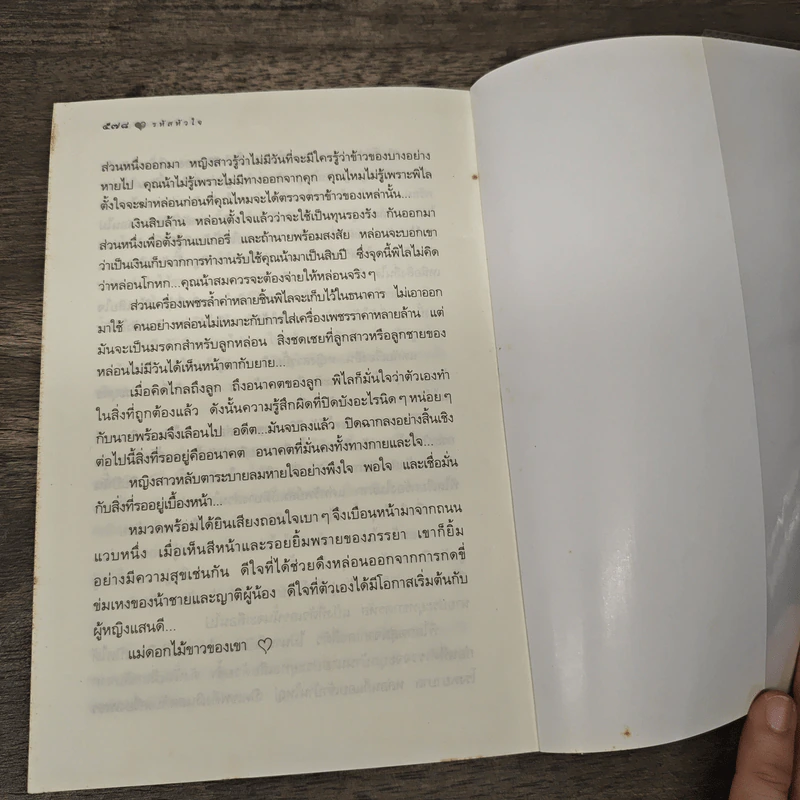 ๕๗๘ รหัสหัวใจ
ส่วนหนึ่งออกมา หญิงสาวรู้ว่าไม่มีวันที่จะมีใครรู้ว่าข้าวของบางอย่าง
หายไป คุณน้าไม่รู้เพราะไม่มีทางออกจากคุก คุณไหมไม่รู้เพราะพิไล
ตั้งใจจะฆ่าหล่อนก่อนที่คุณไหมจะได้ตรวจตราข้าวของเหล่านั้น...
เงินสิบล้าน หล่อนตั้งใจแล้วว่าจะใช้เป็นทุนรองรัง กันออกมา
ส่วนหนึ่งเพื่อตั้งร้านเบเกอรี่ และถ้านายพร้อมสงสัย หล่อนจะบอกเขา
ว่าเป็นเงินเก็บจากการทำงานรับใช้คุณน้ามาเป็นสิบปี ซึ่งจุดนี้พิไลไม่คิด
ว่าหล่อนโกหก...คุณน้าสมควรจะต้องจ่ายให้หล่อนจริงๆ
ส่วนเครื่องเพชรล้ำค่าหลายชิ้นพิไลจะเก็บไว้ในธนาคาร ไม่เอาออก
มาใช้ คนอย่างหล่อนไม่เหมาะกับการใส่เครื่องเพชรราคาหลายล้าน แต่
มันจะเป็นมรดกสำหรับลูกหล่อน สิ่งชดเชยที่ลูกสาวหรือลูกชายของ
หล่อนไม่มีวันได้เห็นหน้าตากับยาย...
เมื่อคิดไกลถึงลูก ถึงอนาคตของลูก พิไลก็มั่นใจว่าตัวเองทำ
ในสิ่งที่ถูกต้องแล้ว ดังนั้นความรู้สึกผิดที่ปิดบังอะไรนิดๆ หน่อยๆ
กับนายพร้อมจึงเลือนไป อดีต...มันจบลงแล้ว ปิดฉากลงอย่างสิ้นเชิง
ต่อไปนี้สิ่งที่รออยู่คืออนาคต อนาคตที่มั่นคงทั้งทางกายและใจ...
หญิงสาวหลับตาระบายลมหายใจอย่างพึงใจ พอใจ และเชื่อมั่น
กับสิ่งที่รออยู่เบื้องหน้า...
หมวดพร้อมได้ยินเสียงถอนใจเบาๆ จึงเบือนหน้ามาจากถนน
แวบหนึ่ง เมื่อเห็นสีหน้าและรอยยิ้มพรายของภรรยา เขาก็ยิ้ม
อย่างมีความสุขเช่นกัน ดีใจที่ได้ช่วยดึงหล่อนออกจากการกดขี่
ข่มเหงของน้าชายและญาติผู้น้อง ดีใจที่ตัวเองได้มีโอกาสเริ่มต้นกับ
ผู้หญิงแสนดี...
แม่ดอกไม้ขาวของเขา ♡